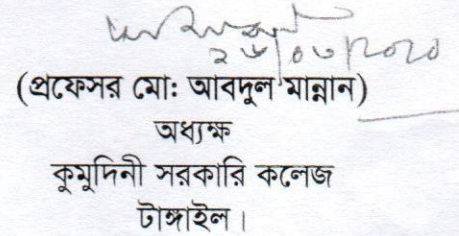 (প্রফেসর মো: আবদুল মান্নান)
অধ্যক্ষ
কুমুদিনী সরকারি কলেজ
টাঙ্গাইল।